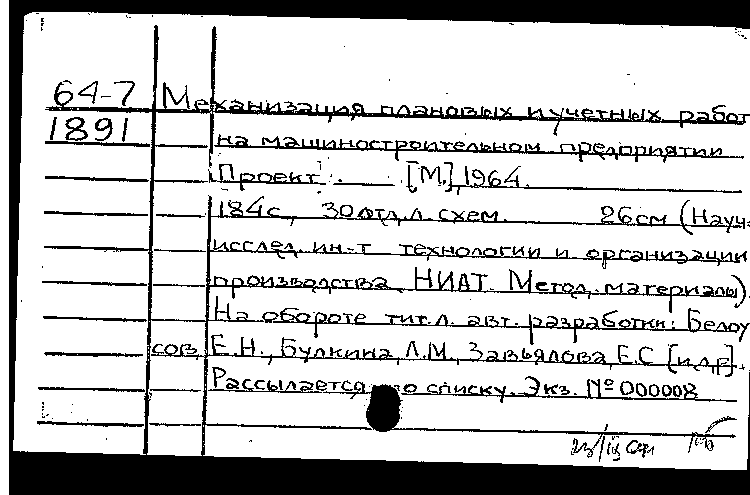 64-7 Механизация плановых и учетных работ
1891 на машиностроительном предприятии
Проект. [М.], 1964.
184с., 30 отд. л. схем. 26см (Науч-
исслед. ин-т технологии и организации
производства НИАТ. Метод. материалы).
На обороте тит. л. авт. разработки: Белоу
сов, Е.Н., Булкина, Л.М., Завьялова, Е.С [и.др].
Рассылается по списку. Экз. № 000008